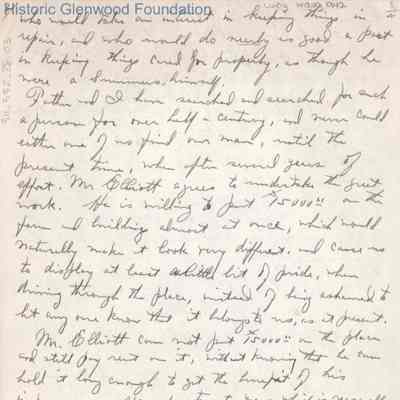 Historic Glenwood Foundation
who would take an interest in keeping things in
repair, and who would do nearly as good a part
in keeping things cared for properly, as though he
were a Summers, himself.
Father and I have searched and searched for such
a person for over half-a-century, and never could
either one of us find our man, until the
present time, when after several years of
effort. Mr. Elliott agrees to undertake the great
work. He is willing to put $15000.00 on the
farm and buildings almost at once, which would
naturally make it look very different, and cause us
to display at least a little bit of pride, when
driving through the place, instead of being ashamed to
let any one know that it belongs to us, as at present.
Mr. Elliott can not put $15000.00 on the place
and still pay rent on it, without knowing that he can
hold it long enough to get the benefit of his